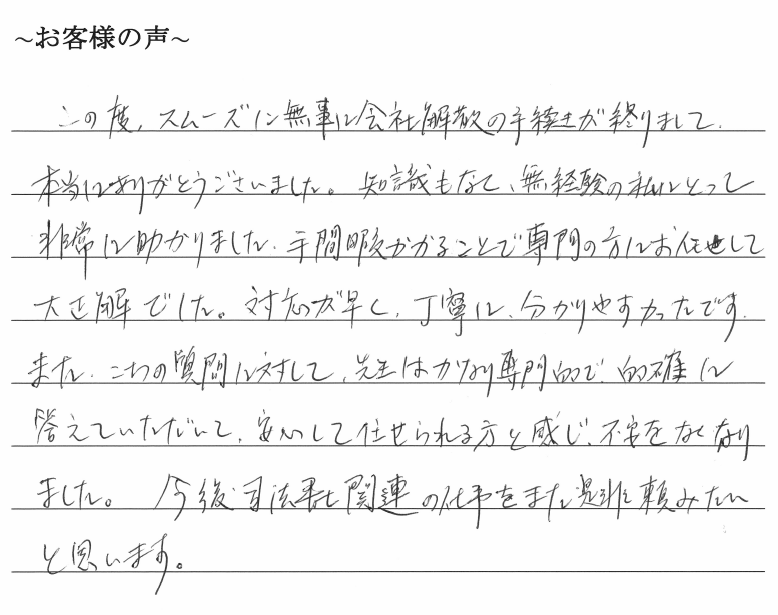 ~お客様の声~
この度、スムーズに無事に会社解散の手続きが終りまして、
本当にありがとうございました。知識もなく、無経験の私にとって
非常に助かりました。手間暇かかることで専門の方にお任せして
大正解でした。対応が早く、丁寧に、分かりやすかったです。
また、こちの質問に対して、先生はかなり専門的で、的確に
答えていただいて、安心して任せられる方と感じ、不安をなくなり
ました。 今後司法書士関連の仕事をまた是非頼みたい
と思います。